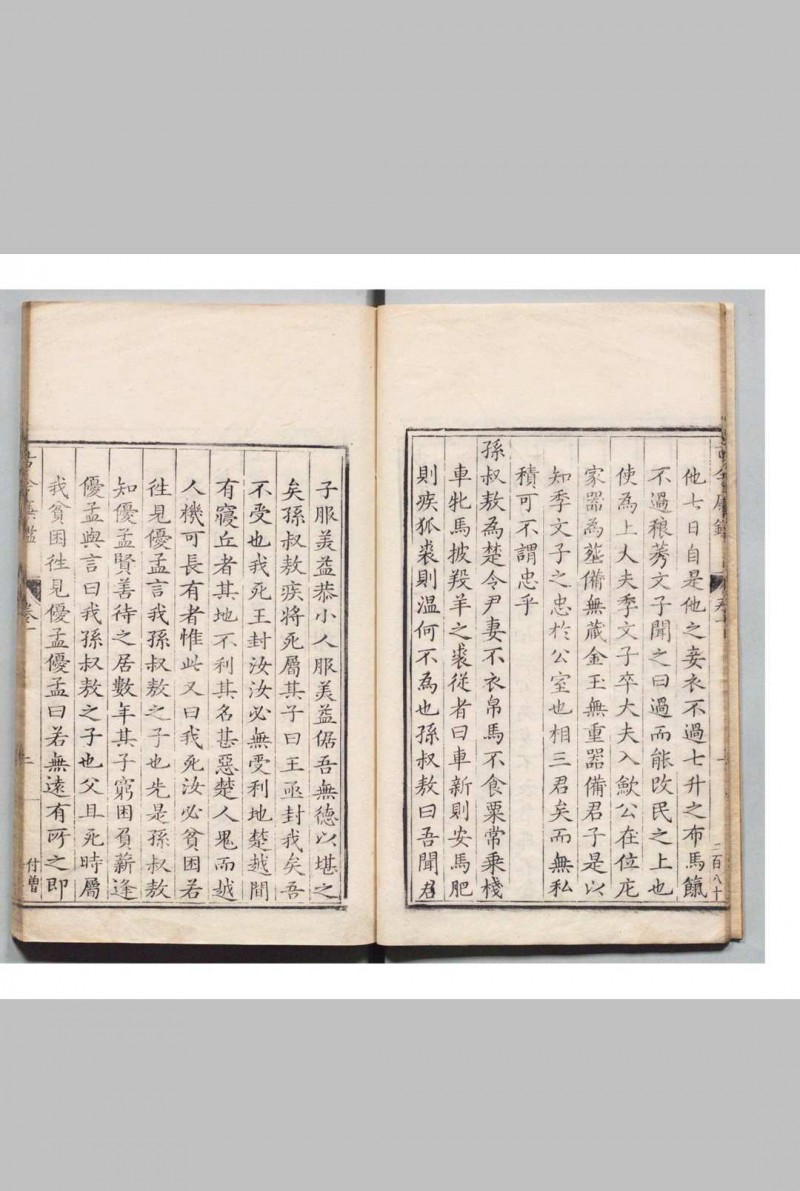 他七日自是他之妾衣不過七升之布馬餼
不過稂莠文子聞之曰過而能改民之上也
使為上大夫季文子卒大夫入歛公在位庀
家器為葬備無蔵金玉無重器備君子是以
知季文子之忠於公室也相三君矣而無私
積可不謂忠乎
孫叔敖為楚令尹妻不衣帛馬不食粟常乘棧
車牝馬披羖羊之裘從者曰車新則安馬肥
則疾狐裘則温何不為也孫叔敖曰吾聞君
子服美益恭小人服美益倨吾無德以堪之
矣孫叔敖疾將死屬其子曰王亟封我矣吾
不受也我死王封汝汝必無受利地楚越間
有寢丘者其地不利其名甚惡楚人鬼而越
人機可長有者惟此又曰我死汝必貧困若
徃見優孟言我孫叔敖之子也先是孫叔敖
知優孟賢善待之居數年其子窮困負薪逢
優孟與言曰我孫叔敖之子也父且死時屬
我貧困徃見優孟優孟曰若無遠有所之即
卷一
二
付曾
二百八十